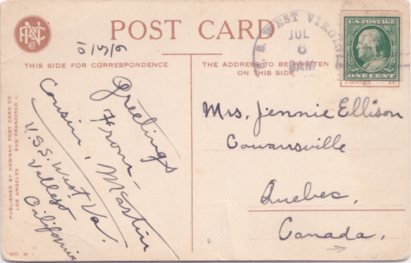 POST CARD
THIS SIDE FOR CORRESPONDENCE
THE ADDRESS TO BE WRITTEN
ON THIS SIDE
U.S. WEST VIRGINIA
JUL
6
U.S. POSTAGE
ONE CENT
Greetings
From
Cousin, Martin
U.S.S. West Va.
Vallejo
California
Mrs. Jennie Ellison
Cowansville
Quebec.
Canada.
PUBLISHED BY NEWMAN POST CARD CO.
LOS ANGELES SAN FRANCISCO